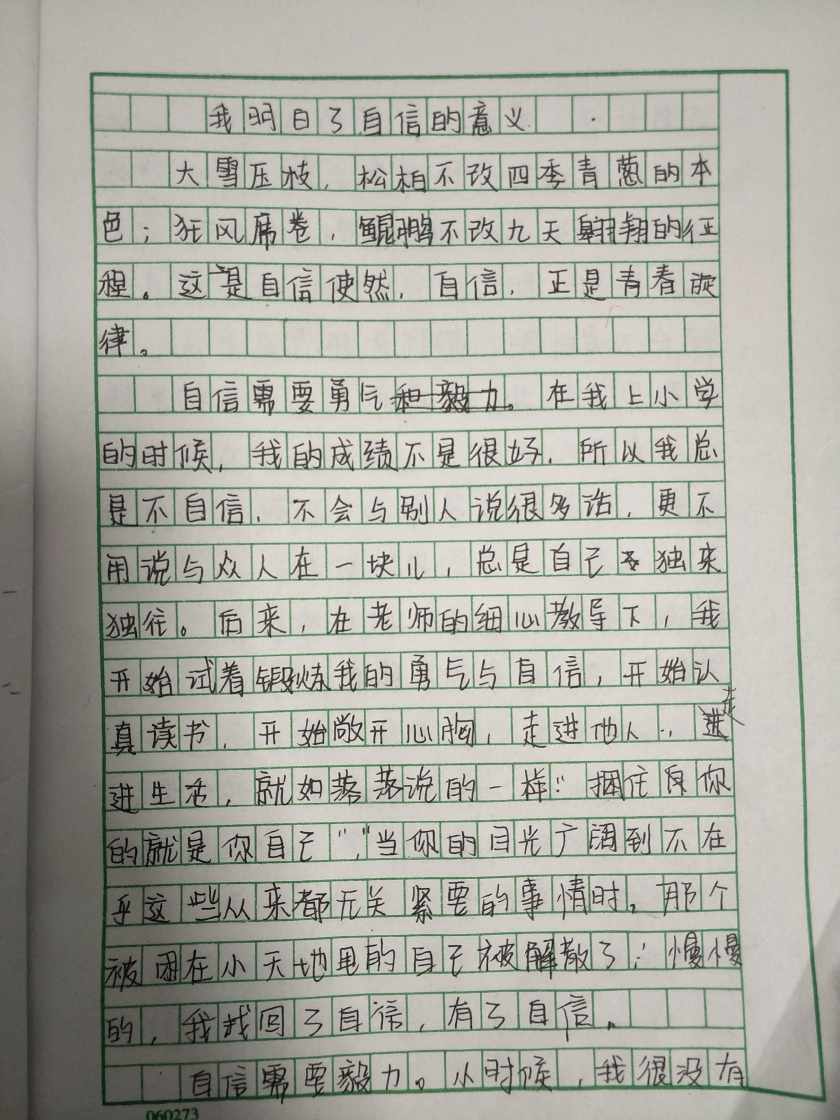 我明白了自信的意义
大雪压枝，松柏不改四季青葱的本
色；狂风席卷，鲲鹏不改九天翱翔的征
程。这是自信使然，自信，正是青春旋
律。
自信需要勇气和毅力。在我上小学
的时候，我的成绩不是很好，所以我总
是不自信，不会与别人说很多话，更不
用说与众人在一块儿，总是自己独来
独往。后来，在老师的细心教导下，我
开始试着锻炼我的勇气与自信，开始认
真读书，开始敞开心胸，走进他人，走
进生活，就如落落说的一样：“捆住你
的就是你自己”，“当你的目光广阔到不在
乎这些从来都无关紧要的事情时。那个
被困在小天地里的自己被解散了；慢慢
的，我找回了自信，有了自信。
自信需要毅力。小时候，我很没有
060273